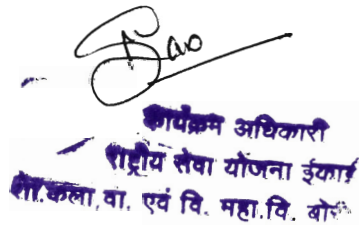 कार्यक्रम अधिकारी
राष्ट्रीय सेवा योजना ईकाई
शा.कला.वा. एवं वि. महा.वि.